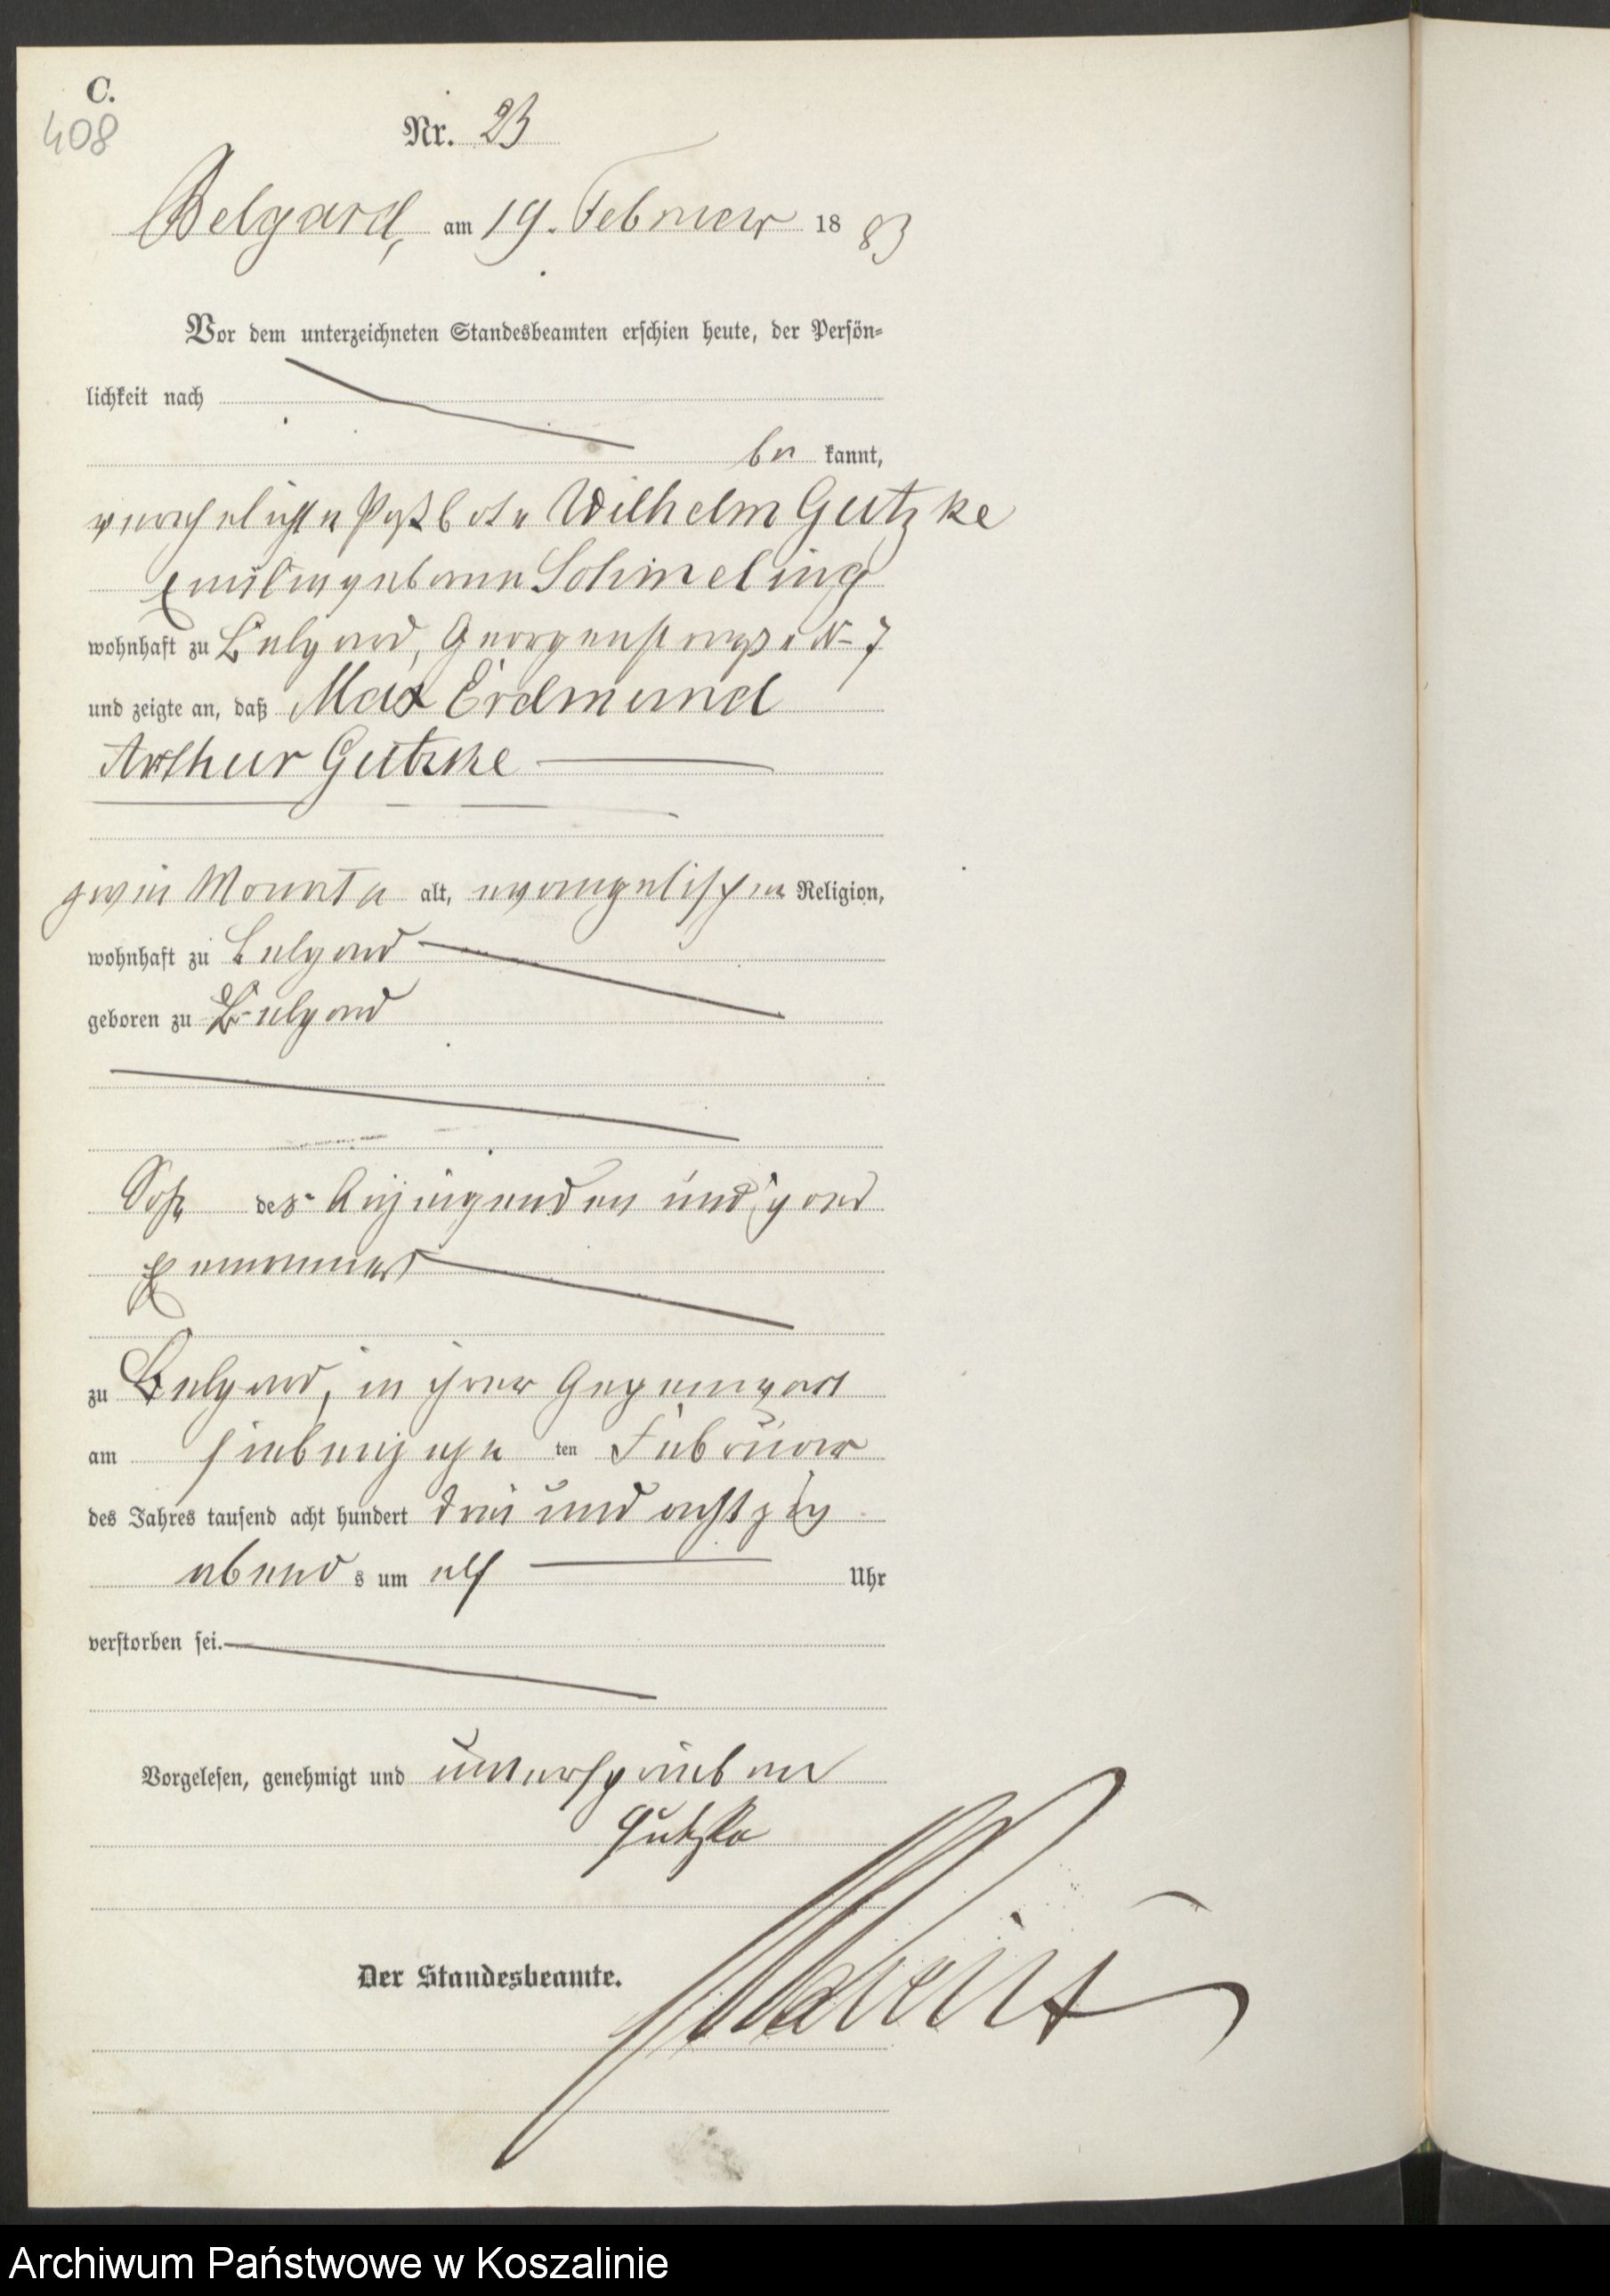 C.
408
Nr. 23
Belgard, am 19. Februar 1883
Vor dem unterzeichneten Standesbeamten erschien heute, der Persön-
lichkeit nach
be kannt,
verehelichte Postbote Wilhelm Gutzke
Emilie geborene Schmeling
wohnhaft zu Belgard, Georgenstraße No 7
und zeigte an, daß Max Erdmund
Arthur Gutzke
zwei Monate alt, evangelischer Religion,
wohnhaft zu Belgard
geboren zu Belgard
Sohn der Anzeigenden und
Ehemannes
zu Belgard, in ihrer Gegenwart
am siebenzehn ten Februar
des Jahres tausend acht hundert drei und achtzig
abend s um elf Uhr
verstorben sei.
Vorgelesen, genehmigt und unterschrieben
Gutzke
Der Standesbeamte.
Archiwum Państwowe w Koszalinie